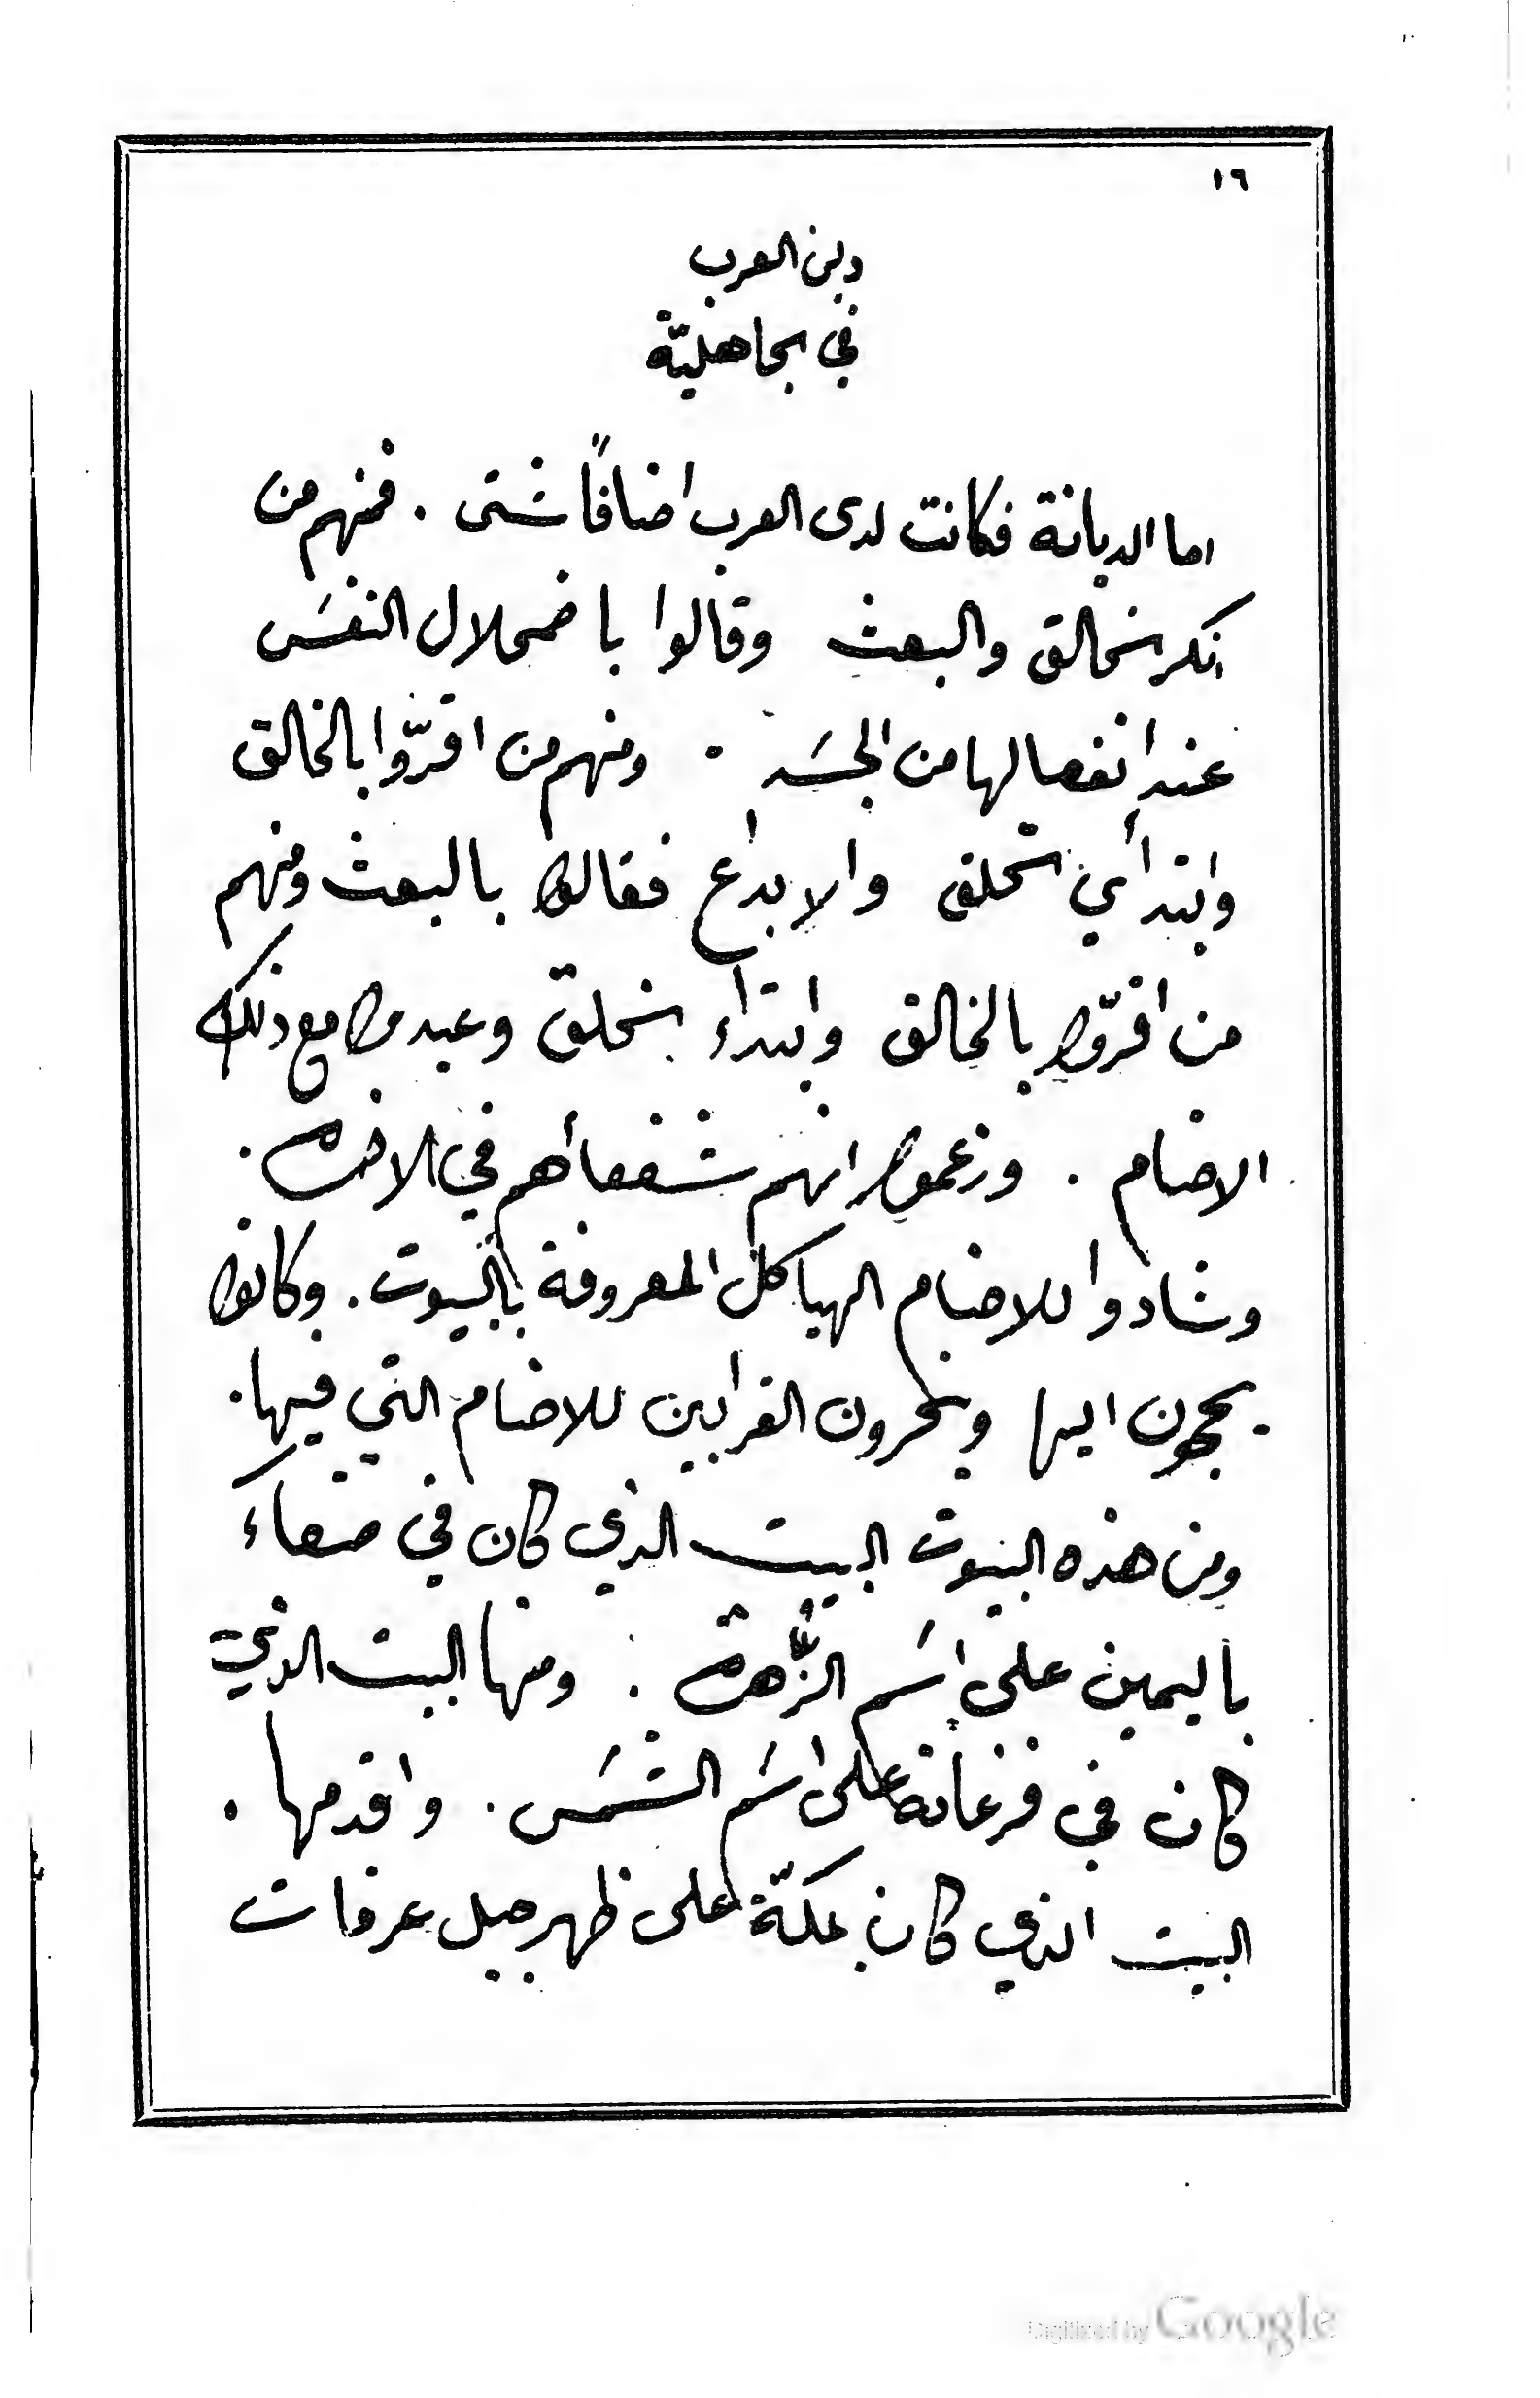 ١٦
دين العرب
في الجاهليّة
اما الديانة فكانت لدى العرب اصنافًا شتى . فمنهم من
انكر الخالق والبعث وقالوا باضمحلال النفسَ
عند انفصالها من الجسَد . ومنهم من اقرّوا بالخالق
وابتدأي الخلق والابداع فقالوا بالبعث ومنهم
من اقرّوا بالخالق وابتداء الخلق وعبدوا مع ذلك
الاصنام . وزعموا انهم شفعأهم في الاخرة .
وشادوا للاصنام الهياكل المعروفة بالبيوت . وكانوا
يحجون اليها وينحرون القرابين للاصنام التي فيها .
ومن هذه البيوت البيت الذي كان في صنعاءَ
باليمين على اسَم الزُّهرة . ومنها البيت الذي
كان في فرغانة على اسَم الشمَس . واقدمها .
البيت الذي كان بمكّة على ظهر جبل عرفات
Digitized by Google